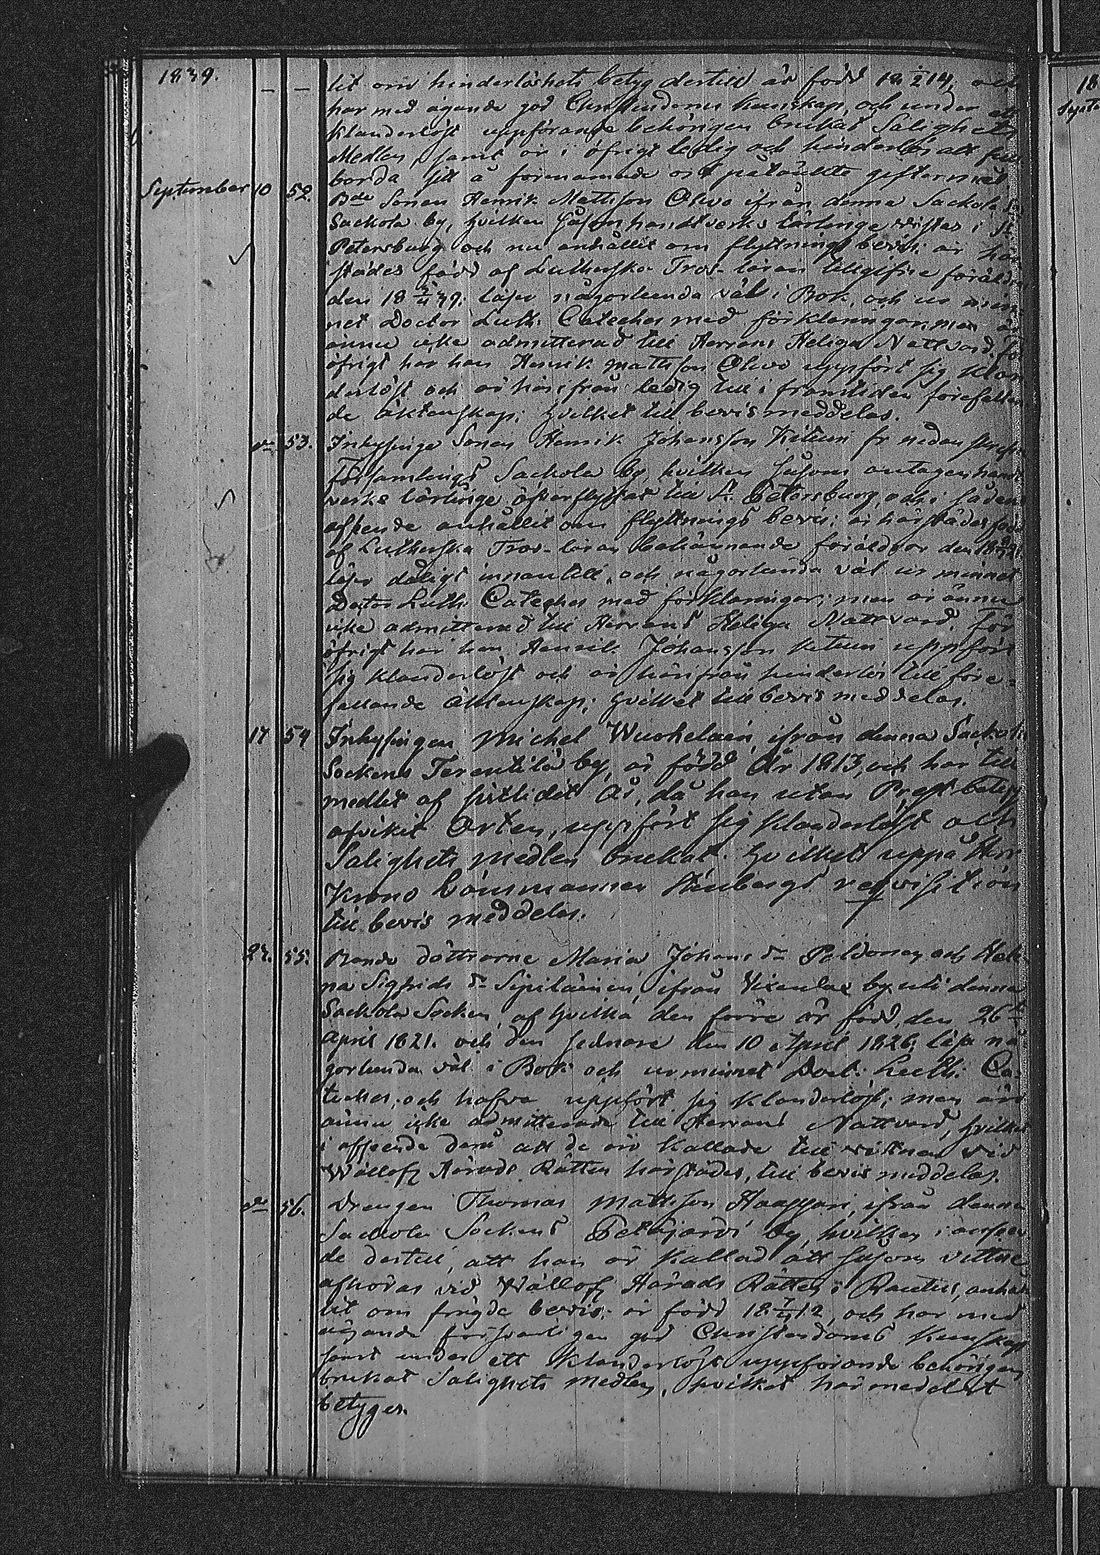 1839.
lit om hinderlöshets betyg dertill är född 18 2/2 14, och
har med ägande god Christendoms kunskap, och under ett
klanderlöst uppförande behörigen brukat Salighets
Medlen, samt är i öfrigt ledig och hinderlös att full
borda sitt å förenämde ort påtänkte giftermål
September 10 52. Bde Sonen Henrik Mattsson Olwo ifrån denna Sackola S
Sackola by, hvilken såsom handtverks lärlinge vistas i St
Petersburg och nu anhållit om flyttnings bevis: är här
städes född af Lutherska Tros-läran tillgifne föräldrar
den 18 39. läser någorlunda väl i Bok, och ur min
net Doctor Luth: Cateches med förklaringar, men är
ännu icke admitterad till Herrans Heliga Nattvard. För
öfrigt har han Henrik Mattsson Olwo uppfört sig klan
derlöst och är härifrån ledig till i framtiden förefallan
de äktenskap; hvilket till bevis meddelas.
dn 53. Inhysinge Sonen Henrik Johansson Kitun fr nedan
Församlings Sackola by hvilken såsom antagen hand
verks lärlinge öfverflyttat till St. Petersburg, och i
afseende anhållit om flyttnings bevis: är härstädes född
af Lutherska Tros-läran bekännande föräldrar den 18
läser dåligt innantill, och någorlunda väl ur minnet
Doctor Luth: Cateches med förklaringar; men är ännu
icke admitterad till Herrans Heliga Nattvard För
öfrigt har han Henrik Johansson Kitun uppfört
sig klanderlöst och är härifrån hinderlös till före-
fallande äktenskap; hvilket till bevis meddelas.
17 54 Inhysingen Michel Wuohelain ifrån denna Sackola
Sockens Terentilä by, är född År 1813, och har till
medlet af sistlidet År, då han utan Prest-betyg
afvikit Orten, uppfört sig klanderlöst och
Salighets medlen brukat. Hvilket uppå Herr
Krono Länsmannen Stenbergs reqvisition
till bevis meddelas.
27. 55. Bonde döttrarne Maria Johans dr Poldonen och Hele
na Sigfrids dr Sipiläinen, ifrån Wixenlax by uti denna
Sackola Socken, af hvilka den förre är född, den 26te
April 1821. och den sednare den 10 April 1826. läsa nå
gorlunda väl i Bok och ur minnet Doct: Luth: Ca-
teches, och hafva uppfört sig klanderlöst; men äro
ännu icke admitterade till Herrans Nattvard, hvilket
i afseende derå att de äro kallade till vittnen vid
Walloff Härads Rätten härstädes, till bevis meddelas.
dn 56. Drengen Thomas Mattsson Haapsari ifrån denna
Sackola Sockens Petäjärvi by, hvilken i afseen
de dertill, att han är kallad att såsom vittne
afhöras vid Walloff Härads Rätten i Rautus, anhål
lit om frägde bevis: är född 18 7/11 12, och har med
ägande försvarligen god Christendoms kunskap
samt under ett klanderlöst uppförande behörigen
brukat Salighets medlen, hvilket härmedelst
betygas.
18
Septe